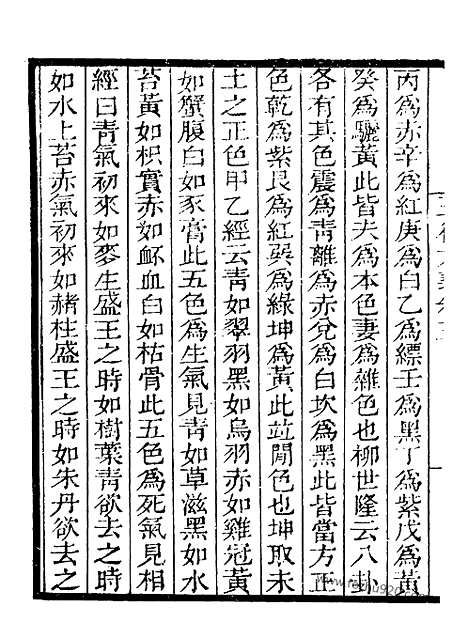 丙為赤辛為紅庚為白乙為縹壬為黑丁為紫戊為黃
癸為驪黃此皆夫為本色妻為雜色也柳世隆云八卦
各有其色震為靑離為赤兌為白坎為黑此皆當方正
色乾為紫艮為紅巽為綠坤為黃此並閒色也坤取未
土之正色甲乙經云靑如翠羽黑如烏羽赤如雞冠黃
如蟹腹白如豕膏此五色為生氣見靑如草滋黑如水
苔黃如枳實赤如衃血白如枯骨此五色為死氣見相
經曰靑氣初來如麥生盛王之時如樹葉靑欲去之時
如水上苔赤氣初來如赭柱盛王之時如朱丹欲去之